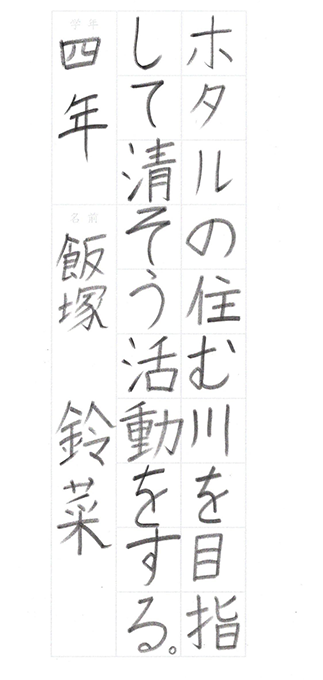 ホタルの住む川を目指
して清そう活動をする。
学年
四年
名前
飯塚 鈴菜